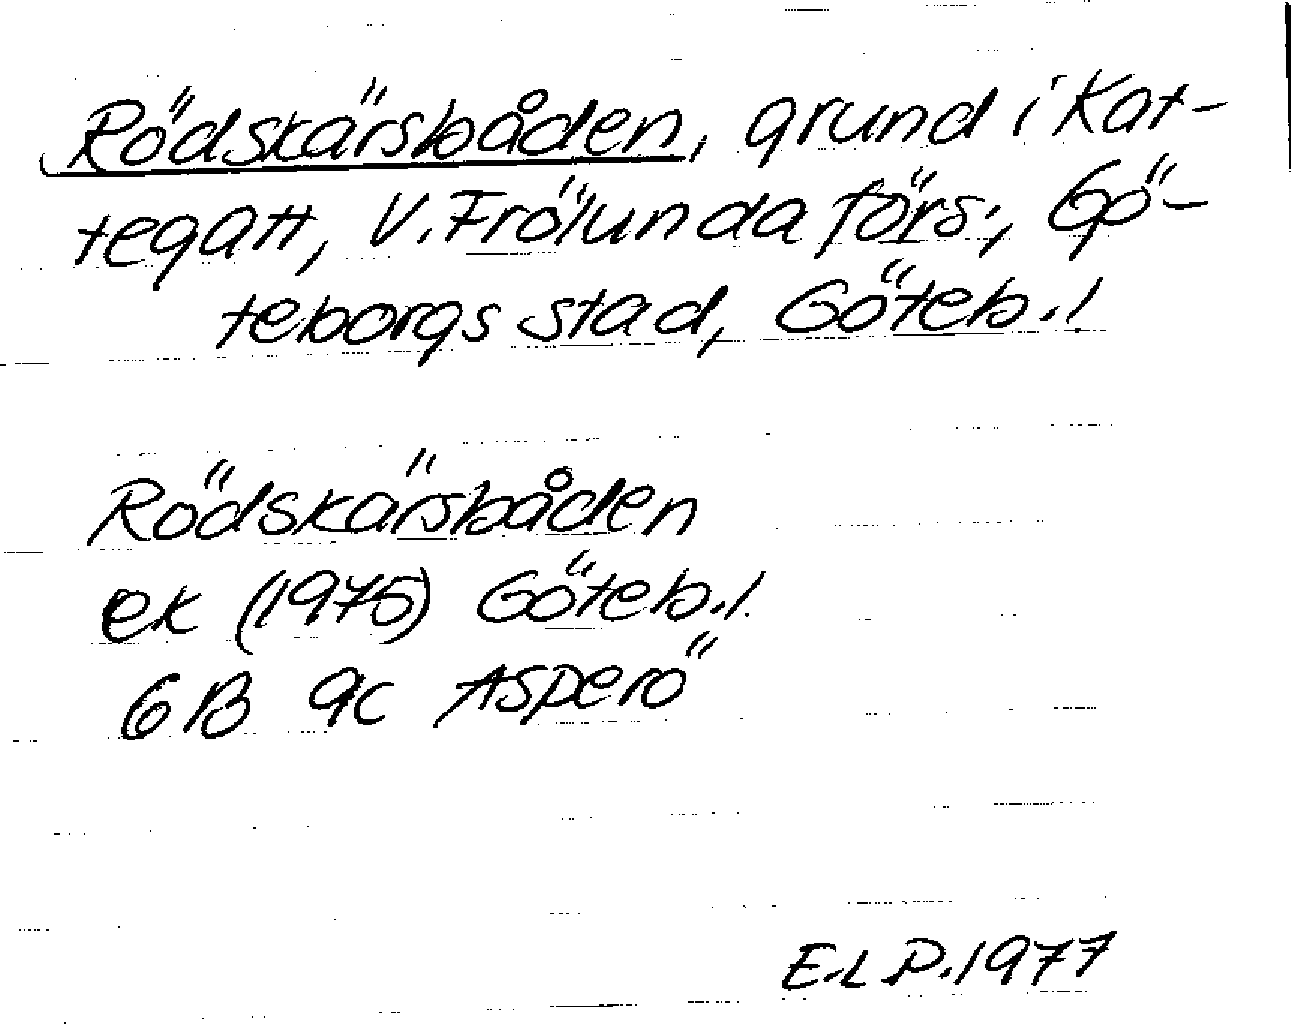 Rödskärsbåden, grund i Kat-
tegatt, V. Frölunda förs., Gö-
teborgs stad, Göteb. l
Rödskärsbåden
ek (1975) Göteb. l.
6B 9c Asperö
E.L.P. 1977